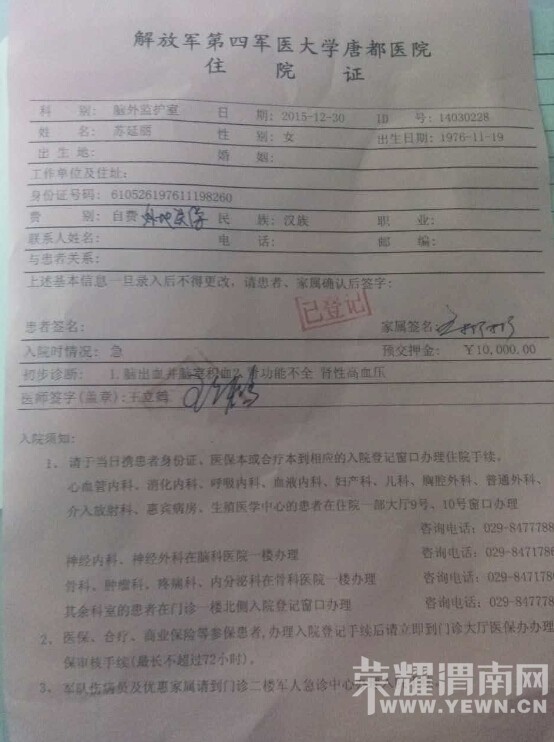 解放军第四军医大学唐都医院
住 院 证
科 别: 脑外监护室 日 期: 2015-12-30 ID 号: 14030228
姓 名: 苏延丽 性 别: 女 出生日期: 1976-11-19
出 生 地: 婚 姻:
工作单位及住址:
身份证号码: 610526197611198260
费 别: 自费 民 族: 汉族 职 业:
联系人姓名: 电 话: 邮 编:
与患者关系:
上述基本信息一旦录入后不得更改，请患者、家属确认后签字:
已登记
患者签名: 家属签名:
入院时情况: 急 预交押金: ¥10,000.00
初步诊断: 1.脑出血并脑室积血2. 肾功能不全 肾性高血压
医师签字(盖章):王立鹤
入院须知:
1、请于当日携患者身份证、医保本或合疗本到相应的入院登记窗口办理住院手续。
心血管内科、消化内科、呼吸内科、血液内科、妇产科、儿科、胸腔外科、普通外科、
介入放射科、惠宾病房、生殖医学中心的患者在住院一部大厅9号、10号窗口办理
咨询电话: 029-8477788
神经内科、神经外科在脑科医院一楼办理 咨询电话: 029-8471786
骨科、肿瘤科、疼痛科、内分泌科在骨科医院一楼办理 咨询电话: 029-8471786
其余科室的患者在门诊一楼北侧入院登记窗口办理 咨询电话: 029-8477790
2、医保、合疗、商业保险等参保患者,办理入院登记手续后请立即到门诊大厅医保办办
保审核手续(最长不超过72小时)。
3、军队伤病员及优惠家属请到门诊二楼军人急诊中心
荣耀渭南网
WWW.YEWN.CN